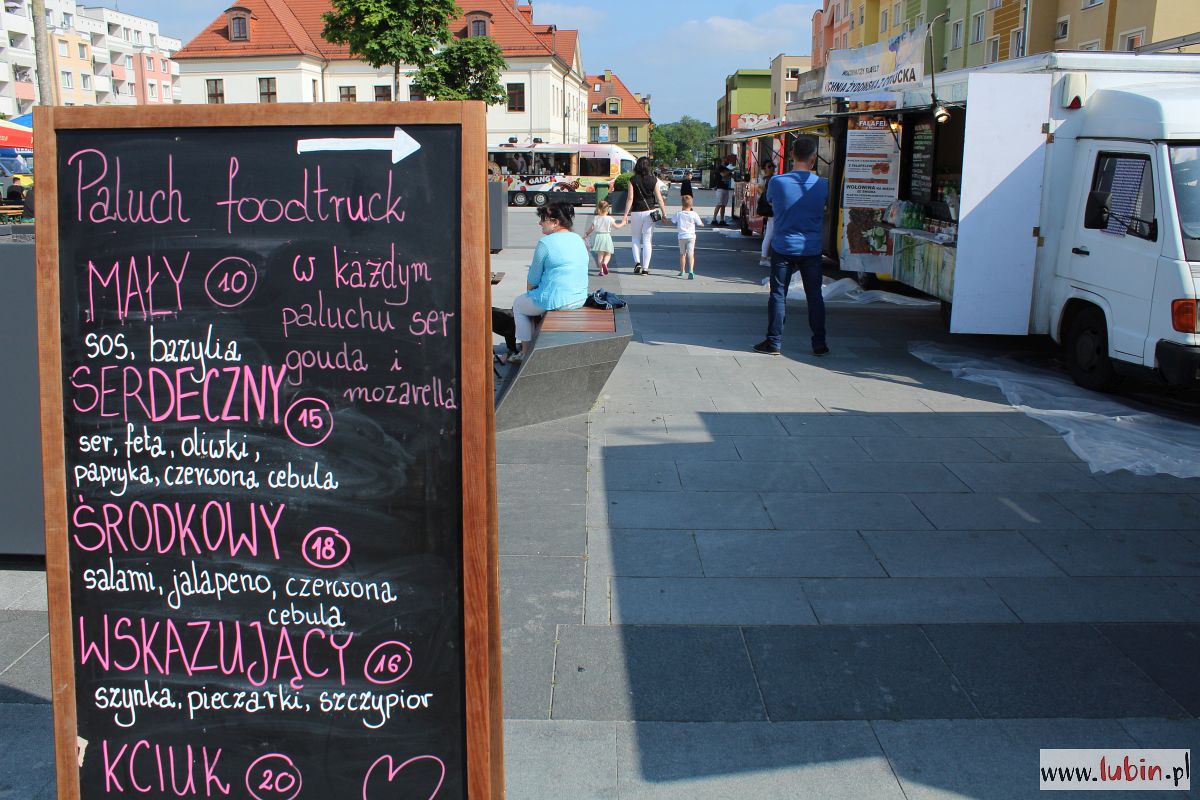 Paluch foodtruck
MAŁY 10
sos, bazylia
w każdym
paluchu ser
gouda i
mozarella
SERDECZNY 15
ser, feta, oliwki,
papryka, czerwona cebula
ŚRODKOWY 18
salami, jalapeno, czerwona
cebula
WSKAZUJĄCY 16
szynka, pieczarki, szczypior
KCIUK 20
FALAFEL
WOŁOWINA
www.lubin.pl